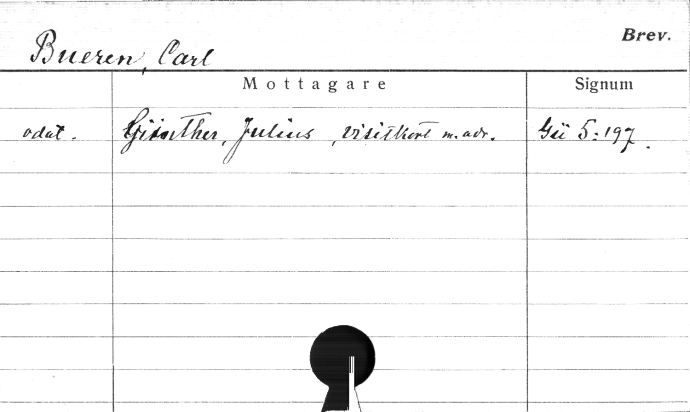 Brev.
Bueren, Carl
Mottagare Signum
odat. Günther, Julius, visitkort m. adr. Gü 5:197.